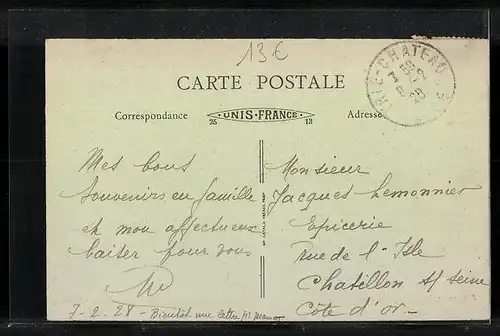 13€
CARTE POSTALE
Correspondance
25 UNIS-FRANCE 13
Adresse
BRIE-CHATEAU
7 -2
28
Mes bons
souvenirs en famille
et mon affectueux
baiser pour vous
7-2-28 - Bientôt une lettre
Monsieur
Jacques Lemonnier
Epicerie
Rue de l'Isle
Chatillon s/ Seine
Côte d'or.